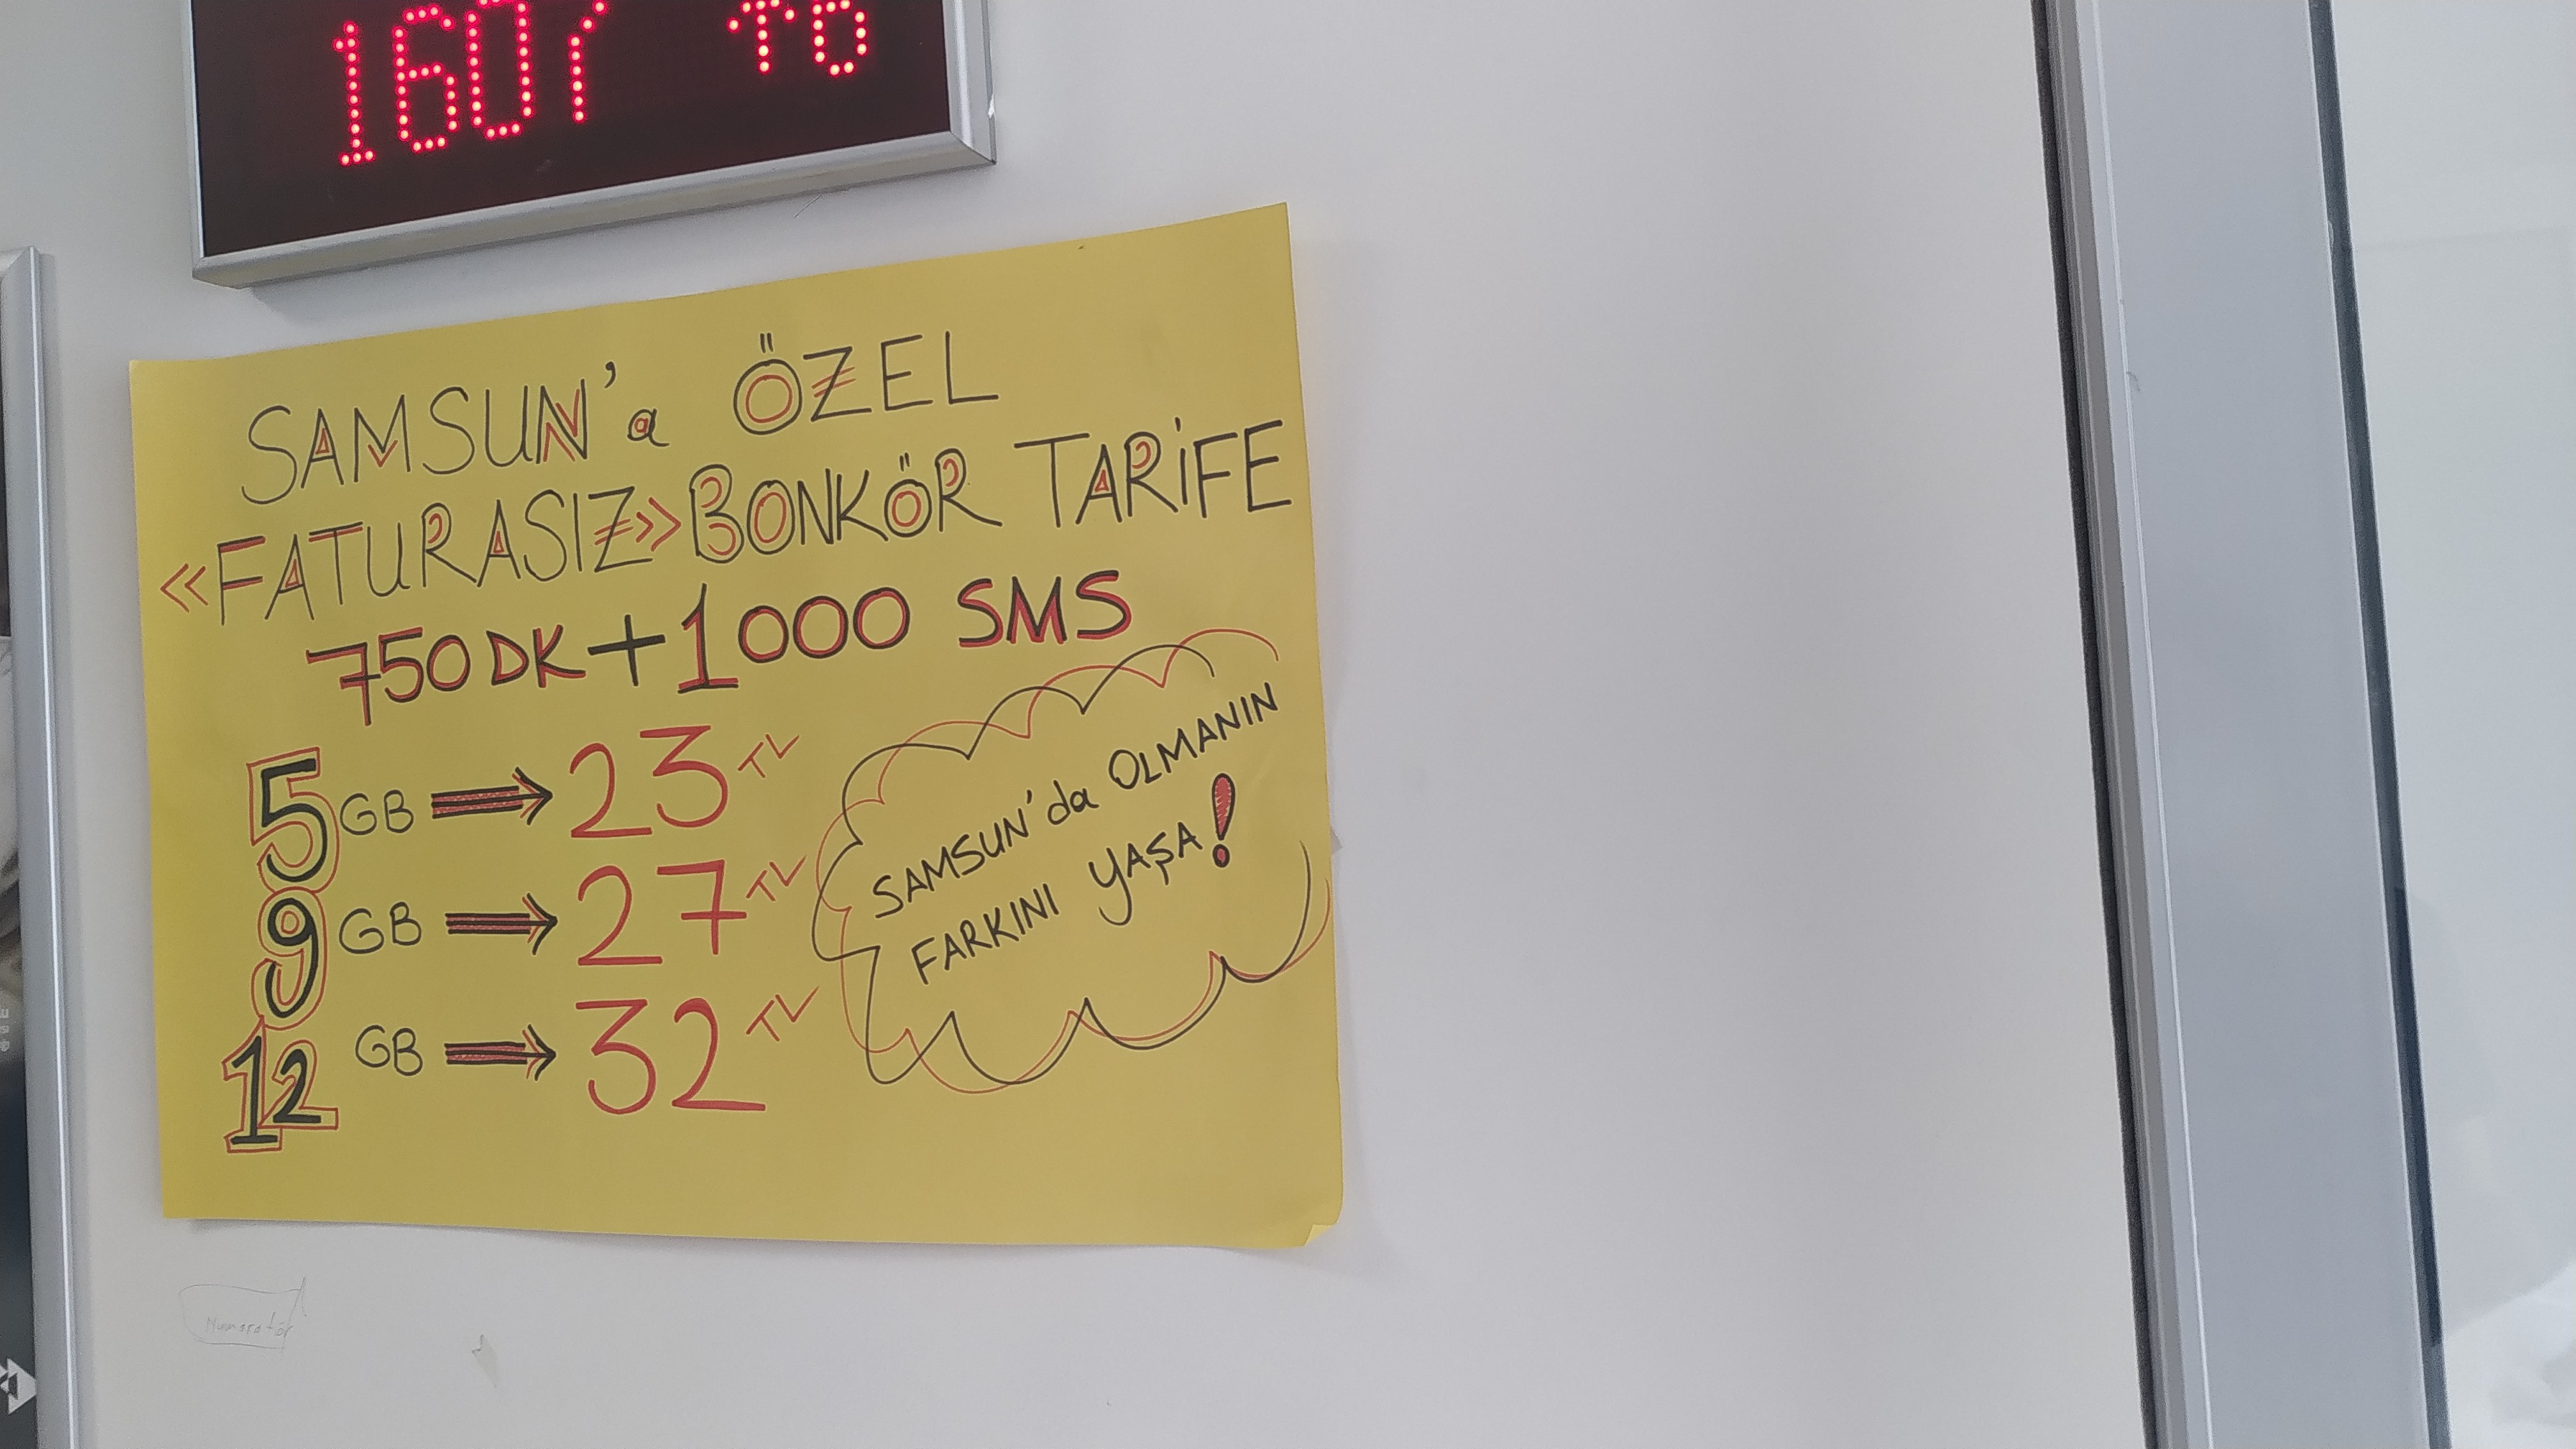 1607 ↑6
SAMSUN'a ÖZEL
«FATURASIZ» BONKÖR TARİFE
750 DK + 1000 SMS
5 GB → 23 TL
9 GB → 27 TL
12 GB → 32 TL
SAMSUN'da OLMANIN
FARKINI YAŞA!
Numaratör